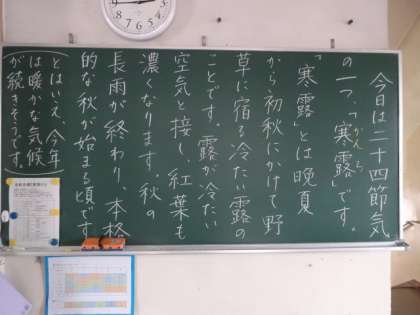 今日は二十四節気
の一つ、「寒露」です。
かんろ
「寒露」とは晩夏
から初秋にかけて野
草に宿る冷たい露の
ことです。露が冷たい
空気と接し、紅葉も
濃くなります。秋の
長雨が終わり、本格
的な秋が始まる頃です
(とはいえ、今年
は暖かな気候
が続きそうです。)